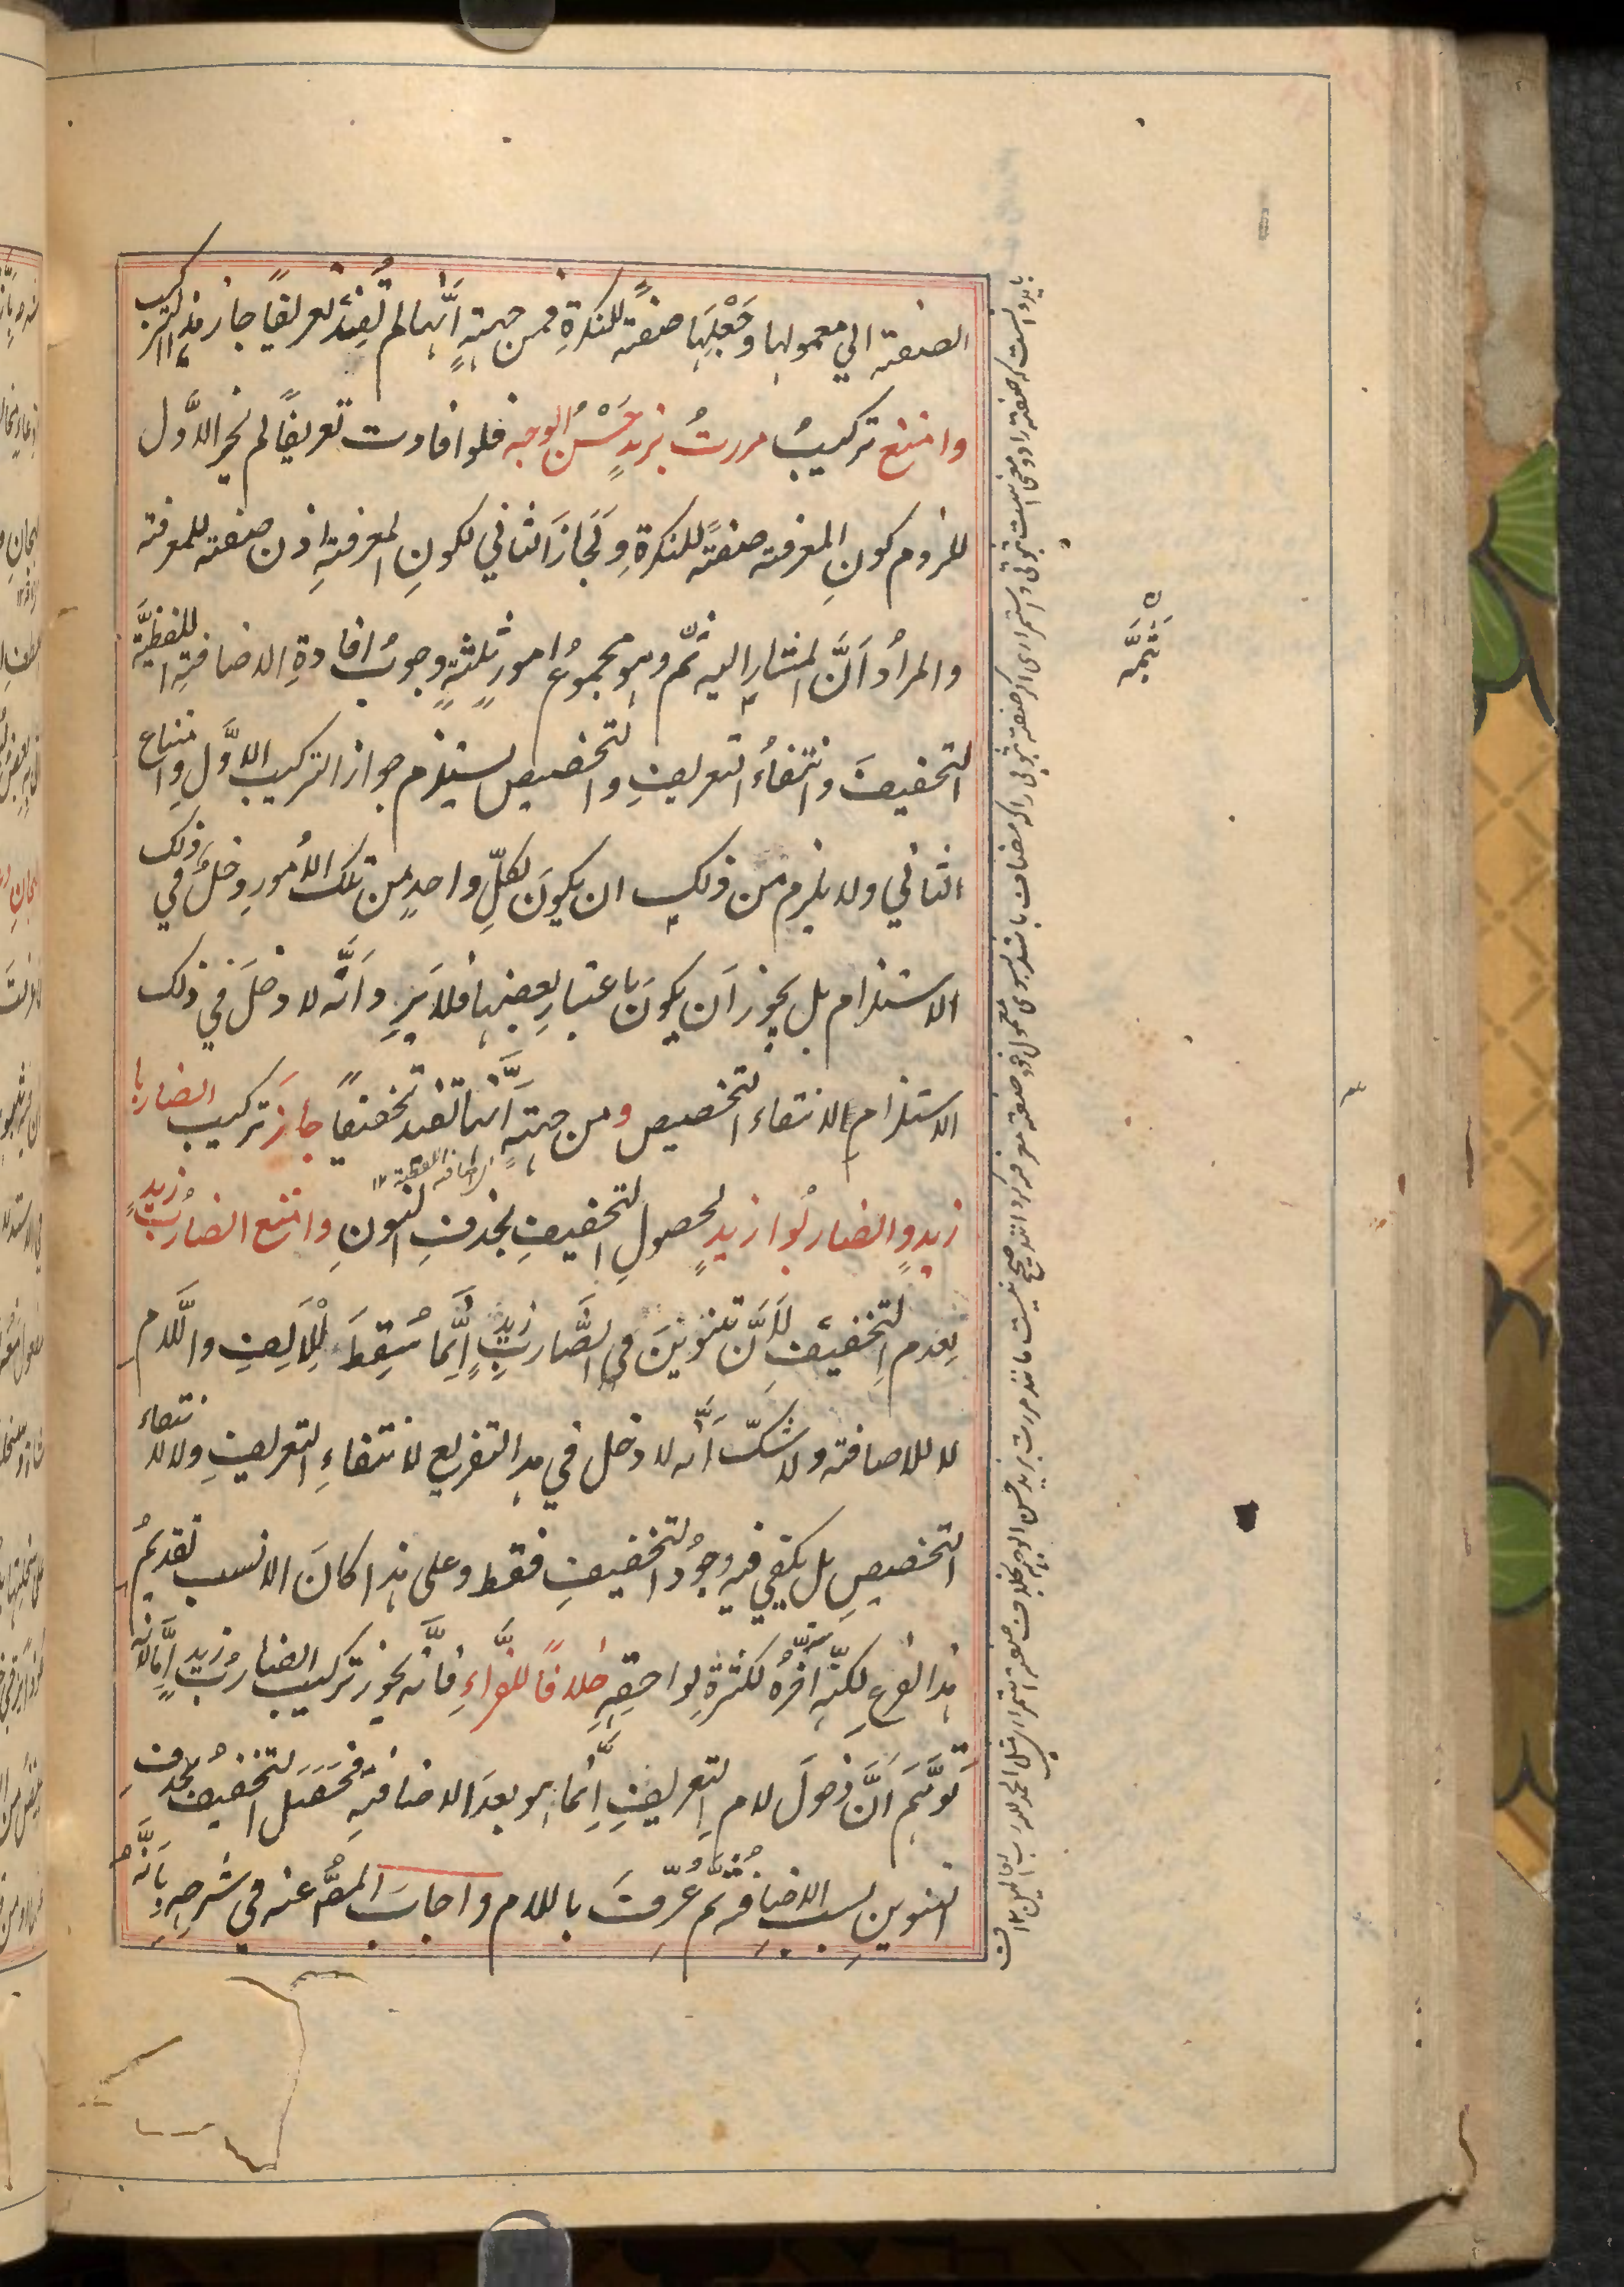 الصفة الي معمولها وجَعْلِهَا صفةً للنكرةِ فمن جهةِ اَنَّها لم تُفِدْ تعريفًا جاز هذا التركيب
وامتنع تركيبُ مررتُ بزيدٍ حَسْنُ الوجه فلو افادت تعريفًا لم يجز الاوَّل
للزوم كونِ المعرفة صفةً للنكرةِ ولَجازَ الثاني لكونِ المعرفةِ اذن صفة للمعرفة
والمرادُ اَنَّ المشار اليه ثَمَّ وهو مجموعُ امورٍ ثلثةٍ وجوبُ افادةِ الاضافةِ اللفظيَّة
التخفيفَ وانتفاءُ التعريفِ والتخصيص يستلزم جواز التركيب الاوَّل وامتناع
الثاني ولا يلزم من ذلك ان يكونَ لكلِّ واحدٍ من تلك الاُمورِ دخلٌ في ذلك
الاستلزام بل يجوز اَن يكونَ باعتبارِ بعضها فلا يَرِد اَنَّه لا دخلَ في ذلك
الاستلزام لانتفاء التخصيص ومن جهةِ اَنَّها تفيد تخفيفًا جازَ تركيب الضاربا
الاضافة اللفظية ١٢
زيدٍ والضاربُوا زيدٍ لحصولِ التخفيفِ بحذفِ النونِ وامتنع الضاربُ زيدٍ
لعدم التخفيفِ لاَنَّ تنوينَ في الضَّاربُ زيدٍ اِنَّما سُقِطَ لِلاَلِفِ واللَّام
لا للاضافة ولا شكّ اَنَّه لا دخل في هذا التفريع لانتفاءِ التعريفِ ولا لانتفاء
التخصيصِ بل يكفي فيه وجودُ التخفيفِ فقط وعلى هذا كانَ الانسب تقديمُ
هذا الفرعِ لكنَّه اخَّرهُ لكثرةِ لواحقِهِ خلافًا للفَرَّاءِ فاِنَّه يجوز تركيب الضاربُ زيدٍ اِمَّا لاَنَّه
تَوهَّمَ اَنَّ دخولَ لام التعريفِ اِنَّما هو بعدَ الاضافةِ فحَصَلَ التخفيفُ بحذفِ
التنوينِ بسبب الاضافة ثُمَّ عُرِّفَ باللام واجابَ المصُّ عنه في شرحِهِ بِاَنَّهُ